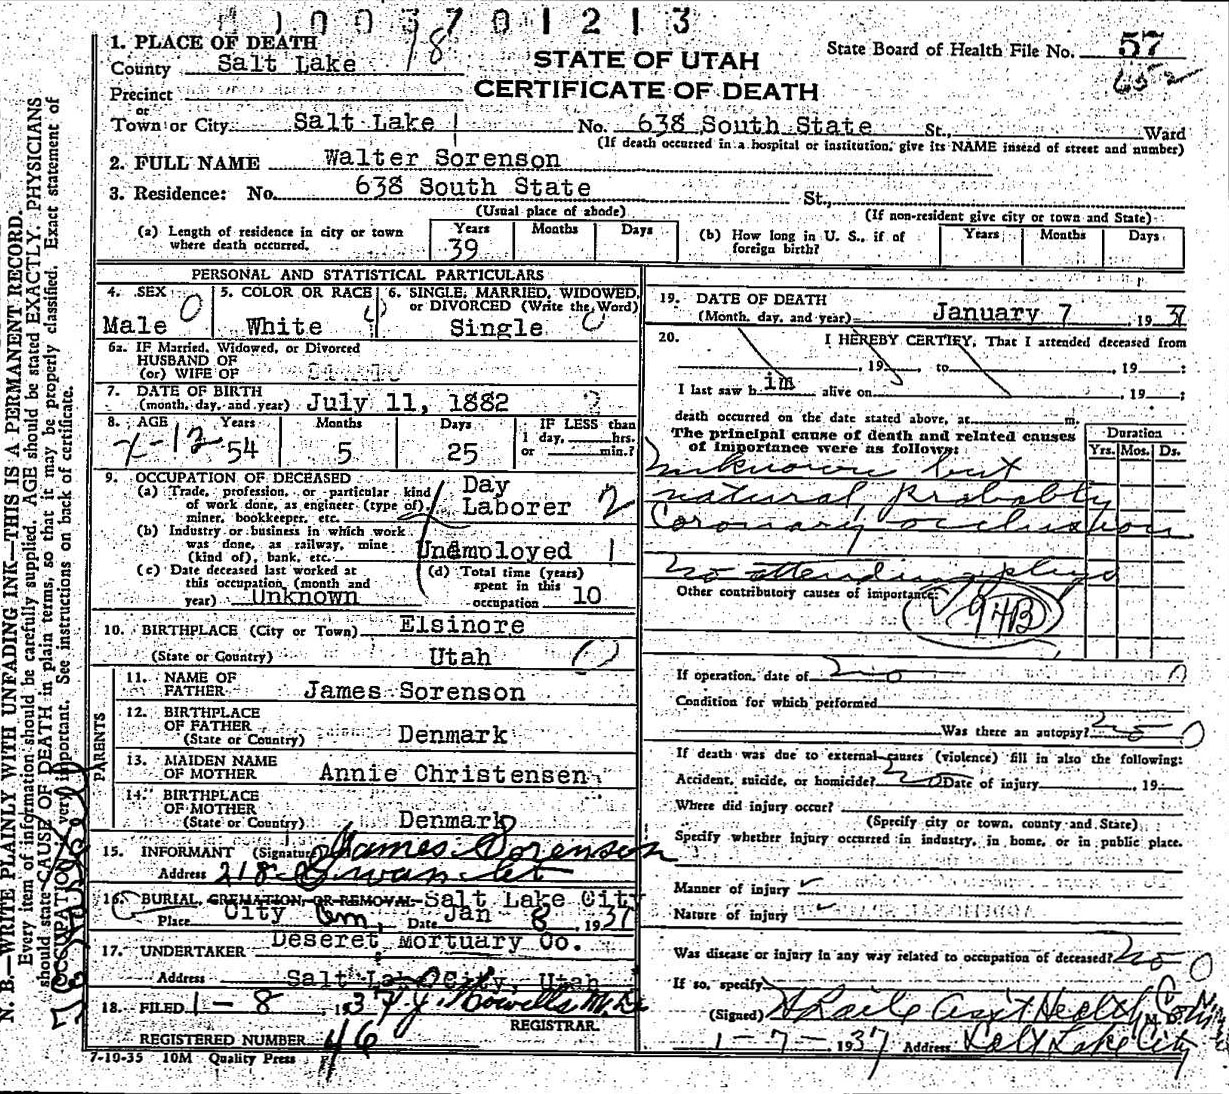 003701213
1. PLACE OF DEATH
County Salt Lake 18
Precinct
or
Town or City Salt Lake No. 638 South State St., Ward
(If death occurred in a hospital or institution, give its NAME insead of street and number)
STATE OF UTAH
CERTIFICATE OF DEATH
State Board of Health File No. 57
652
2. FULL NAME Walter Sorenson
3. Residence: No. 638 South State St.,
(Usual place of abode) (If non-resident give city or town and State)
(a) Length of residence in city or town where death occurred. Years 39 Months Days
(b) How long in U. S., if of foreign birth? Years Months Days
PERSONAL AND STATISTICAL PARTICULARS
4. SEX 0 5. COLOR OR RACE 6. SINGLE, MARRIED, WIDOWED,
or DIVORCED (Write the Word)
Male White Single 0
6a. IF Married, Widowed, or Divorced
HUSBAND OF
(or) WIFE OF
7. DATE OF BIRTH
(month, day, and year) July 11, 1882
8. AGE Years Months Days IF LESS than
7-12 54 5 25 1 day, hrs.
or min.?
9. OCCUPATION OF DECEASED
(a) Trade, profession, or particular kind
of work done, as engineer (type of)
miner, bookkeeper, etc.
Day
Laborer 2
(b) Industry or business in which work
was done, as railway, mine
(kind of), bank, etc. Unemployed 1
(c) Date deceased last worked at
this occupation, (month and
year) Unknown
(d) Total time (years)
spent in this
occupation 10
10. BIRTHPLACE (City or Town) Elsinore
(State or Country) Utah 0
PARENTS
11. NAME OF
FATHER James Sorenson
12. BIRTHPLACE
OF FATHER
(State or Country) Denmark
13. MAIDEN NAME
OF MOTHER Annie Christensen
14. BIRTHPLACE
OF MOTHER
(State or Country) Denmark
15. INFORMANT (Signature) James Sorenson
Address 218
16. BURIAL, CREMATION, OR REMOVAL Salt Lake City
Place City Cem, Date Jan 8, 1937
17. UNDERTAKER Deseret Mortuary Co.
Address Salt Lake City, Utah
18. FILED 1-8, 1937 T.J. Howells M.D.
REGISTRAR.
REGISTERED NUMBER 46
7-19-35 10M Quality Press
19. DATE OF DEATH
(Month, day, and year) January 7, 1937
20. I HEREBY CERTIFY, That I attended deceased from
, 19 , to , 19 ;
I last saw him alive on , 19 ;
death occurred on the date stated above, at m.
The principal cause of death and related causes
of importance were as follows:
Duration
Yrs. Mos. Ds.
unknown but
natural probably
Coronary occlusion
no attending phys
Other contributory causes of importance:
94B
If operation, date of no 0
Condition for which performed
Was there an autopsy? no 0
If death was due to external causes (violence) fill in also the following:
Accident, suicide, or homicide? no Date of injury , 19
Where did injury occur?
(Specify city or town, county and State)
Specify whether injury occurred in industry, in home, or in public place.
Manner of injury
Nature of injury
Was disease or injury in any way related to occupation of deceased? no 0
If so, specify
(Signed) Ass't Health M. D.
1-7-, 1937 Address Salt Lake City
N. B.—WRITE PLAINLY WITH UNFADING INK—THIS IS A PERMANENT RECORD.
Every item of information should be carefully supplied. AGE should be stated EXACTLY. PHYSICIANS
should state CAUSE OF DEATH in plain terms, so that it may be properly classified. Exact statement of
OCCUPATION is very important. See instructions on back of certificate.